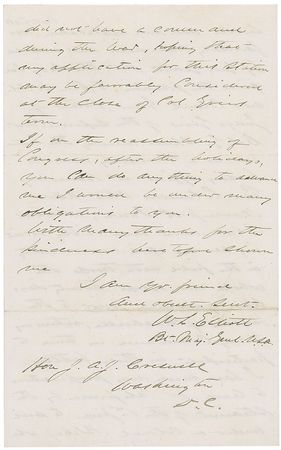 did not have a command
during the War, hoping that
my application for this Station
may be favorably Considered
at the close of Col.
term.
If on the reassembling of
Congress, after the holidays,
you can do anything to advance
me I would be under many
obligations to you.
With many thanks for the
kindness heretofore shown
me
I am yr. friend
And obedt. Servt.
W. L. Elliott
Bt. Maj. Genl. U.S.A.
Hon J. A. J. Creswell
Washington
D. C.